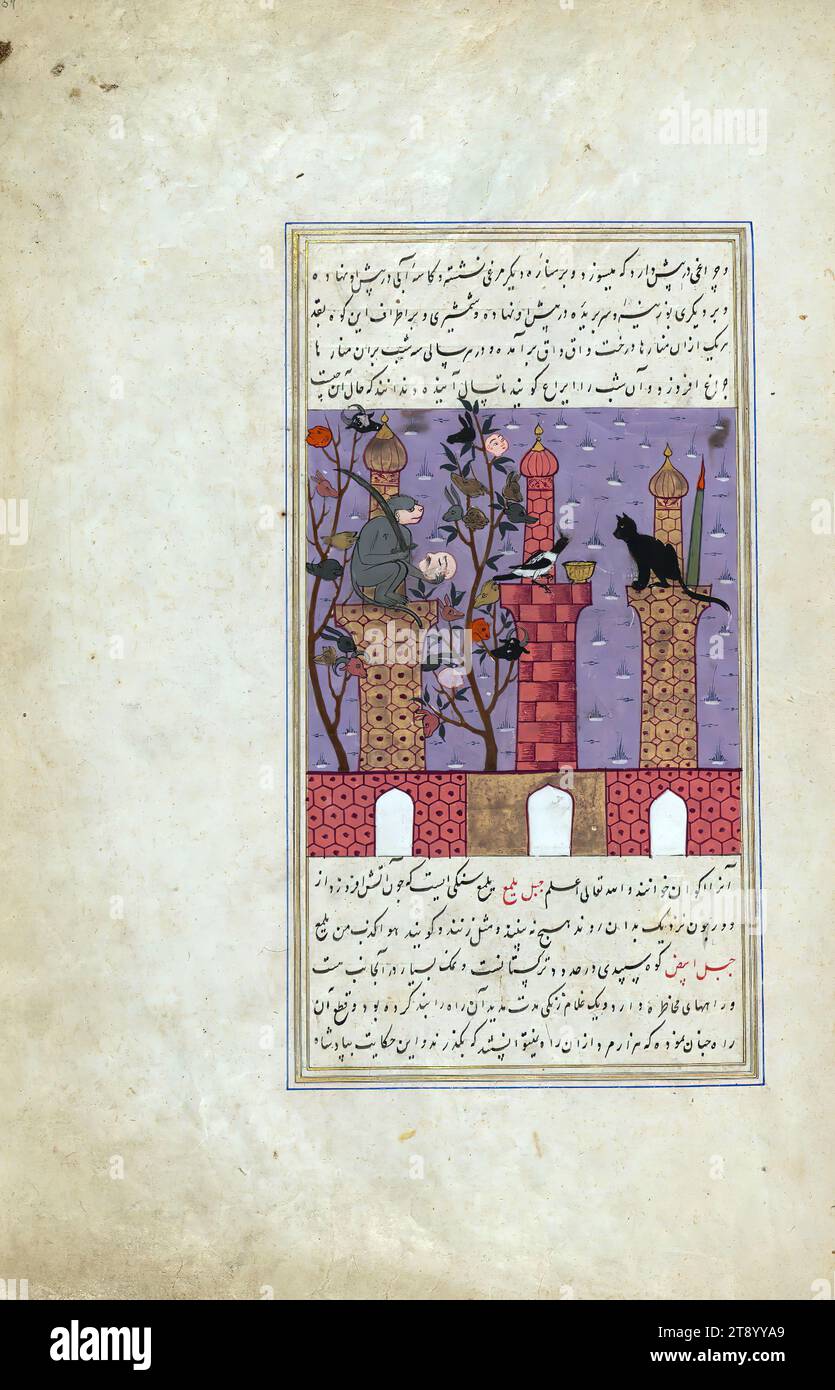 وچراغی در پیش دارد که میسوزد و بر مناره دیگر مرغی نشسته و کاسه آبی در پیش او نهاده
و بر دیگری بوزینه و سر بریده در پیش او نهاده و شمشیری و بر اطراف این کوه بعد
هر یک ازان منارها درخت واق واق بر آمده و در هر سالی سه شب بران منارها
چراغ افروزد و آن شب را گویند تا سال آینده ندانند که حال آن چیست
آنرا خوانند والله تعالی اعلم جبل یلمع یلمع سنکی است که چون آتش افروزد از
دور چون نزدیک بدان روند هیچ نه بینند و مثل زنند و کویند هو اکذب من یلمع
جبل ابیض کوه سپیدی در حدود ترکستانست و نمک بسیار در آنجانب هست
و راههای مخاطره دارد و یک غلام زنکی مدت مدید آن راه را بند کرده بود و قطع آن
راه چنان نموده که هزار مرد ازان راه نمیتوانستند که بگذرند و این حکایت بپادشاه
alamy
alamy
Image ID: 2T8YYA9
www.alamy.com